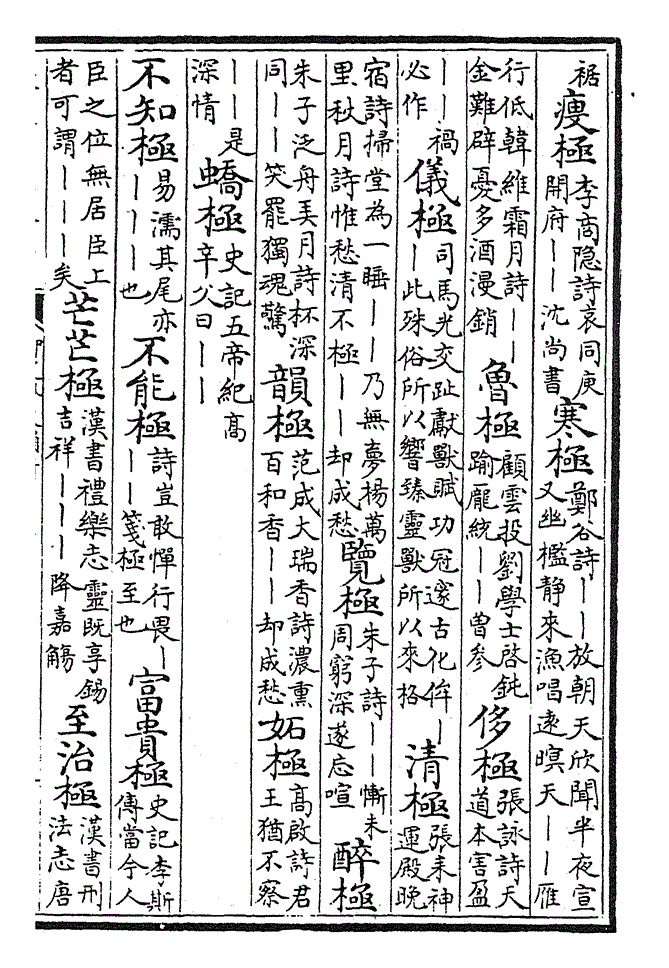 裾瘦極李商隠詩哀同庾開府——沈尚書寒極鄭谷詩——放朝天欣聞半夜宣又幽檻静來漁唱逺暝天——雁
行低韓維霜月詩——金難辟憂多酒漫銷魯極顧雲投劉學士啓鈍踰龎統——曾參侈極張詠詩天道本害盈
——禍必作儀極司馬光交趾獻獸賦功冠邃古化侔——此殊俗所以響臻靈獸所以來格清極張耒神運殿晚
宿詩掃堂為一睡——乃無夢楊萬里秋月詩惟愁清不極——却成愁覽極朱子詩——慚未周窮深遂忘喧醉極
朱子泛舟美月詩杯深同——笑罷獨魂驚韻極范成大瑞香詩濃熏百和香——却成愁妬極高啟詩君王猶不察
——是深情蟜極史記五帝紀高辛父曰——
不知極易濡其尾亦———也不能極詩豈敢憚行畏———箋極至也富貴極史記李斯傳當今人
臣之位無居臣上者可謂———矣芒芒極漢書禮樂志靈既享錫吉祥———降嘉觴至治極漢書刑法志唐